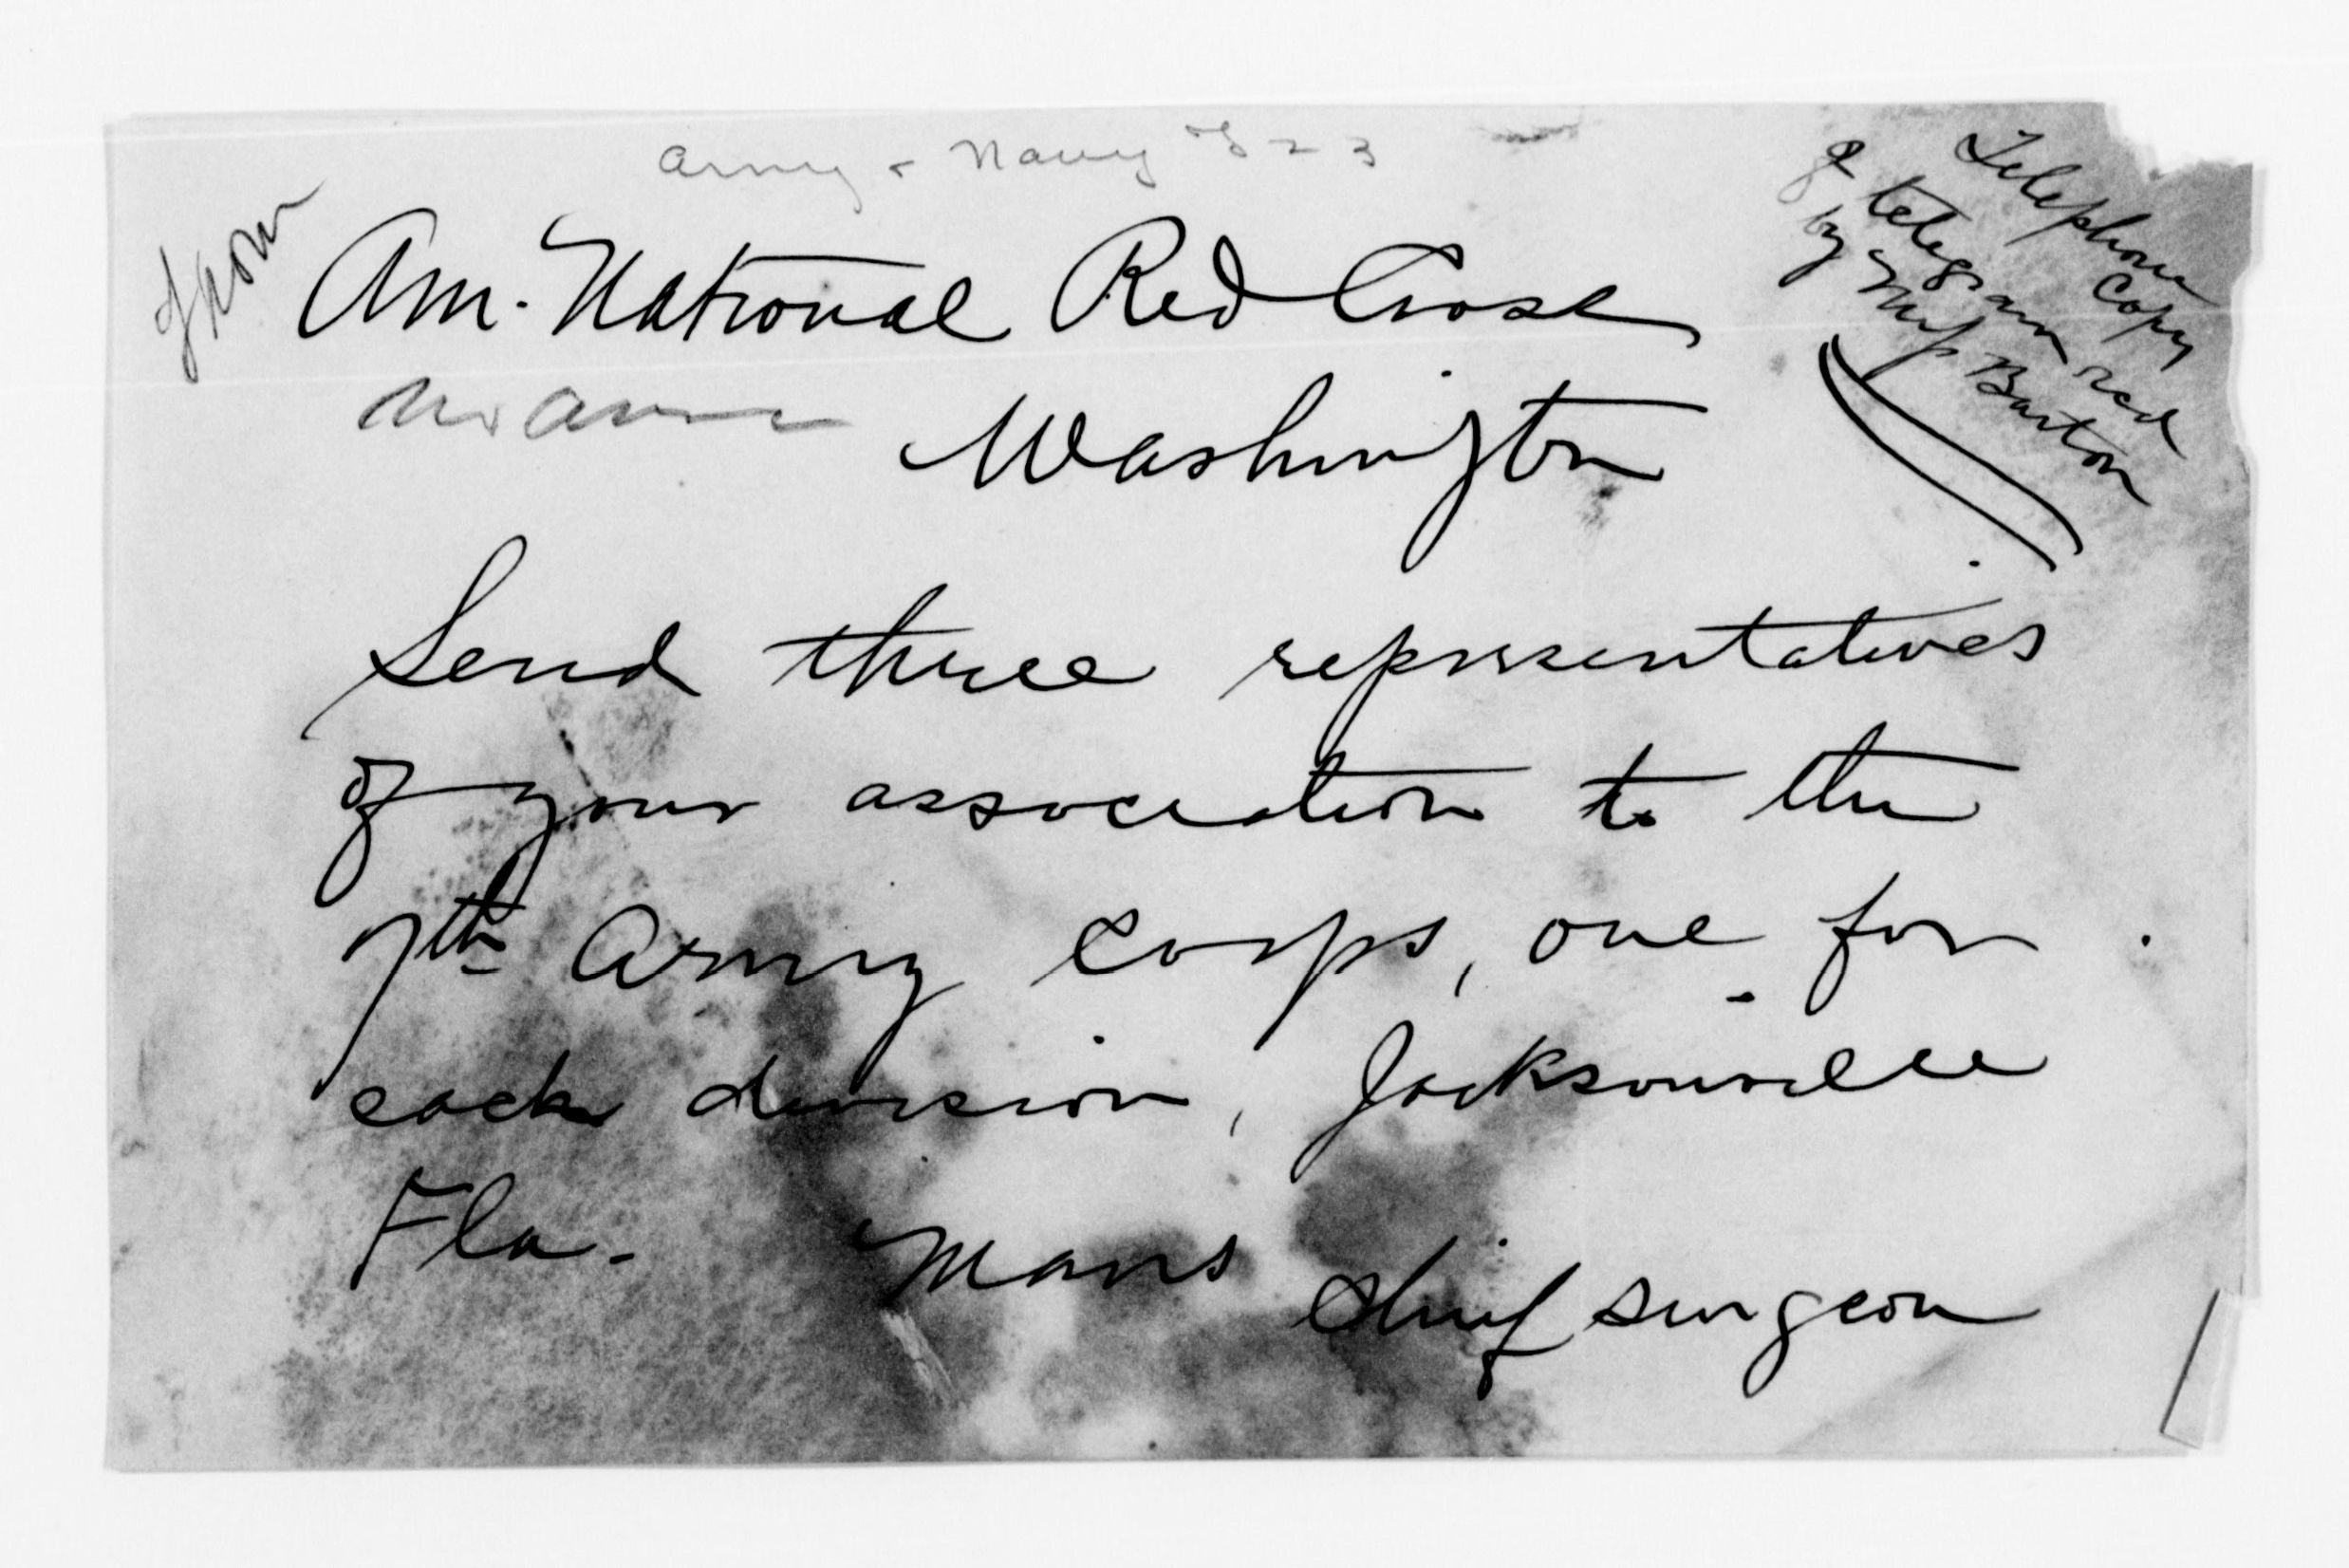 Army & Navy
Telephone Copy
of telegram recd
by Miss Barton
from
Am. National Red Cross
Washington
Send three representatives
of your association to the
7th Army Corps, one for
each division, Jacksonville
Fla. Maus
Chief Surgeon